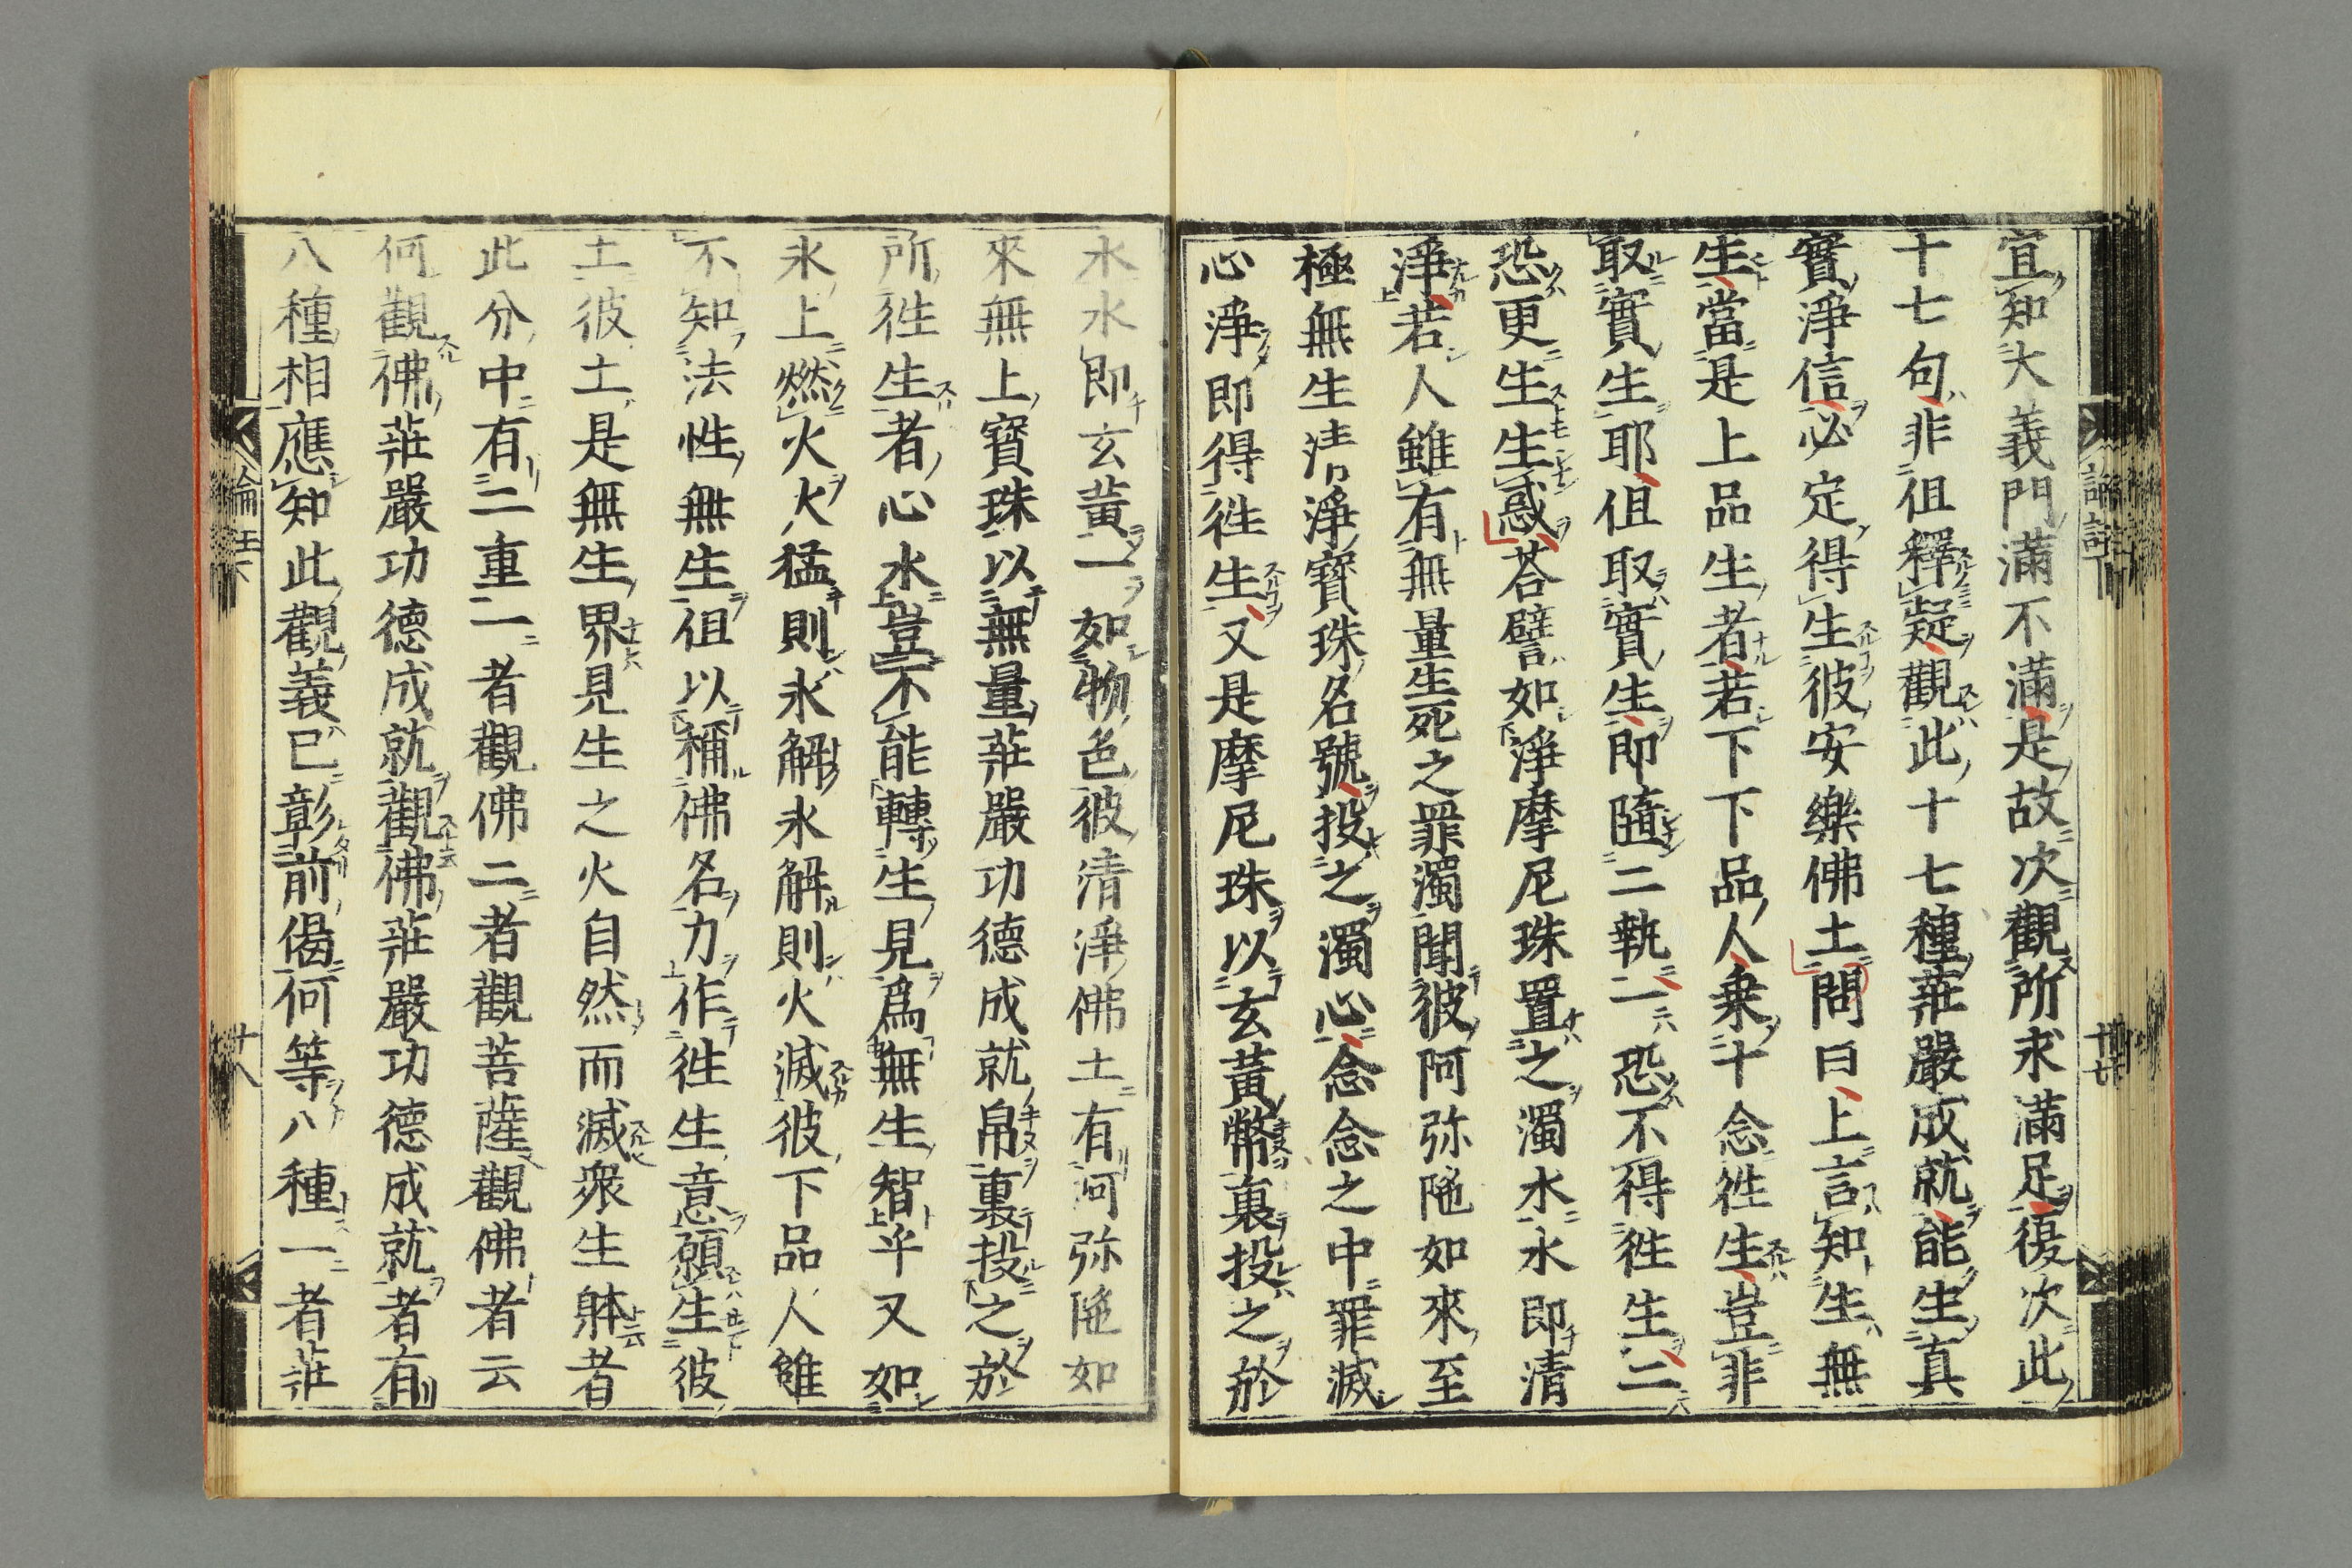 宜知大義門滿不滿是故次觀所求滿足復次此
十七句非徂釋疑觀此十七種莊嚴成就能生真
實淨信必定得生彼安樂佛土問曰上言知生無
生當是上品生者若下下品人乗十念徃生豈非
取實生耶徂取實生即隨二執一恐不得徃生二
恐更生生惑荅譬如淨摩尼珠置之濁水水即清
淨若人雖有無量生死之罪濁聞彼阿弥陁如來至
極無生清淨寶珠名號投之濁心念念之中罪滅
心淨即得徃生又是摩尼珠以玄黃幣裹投之於
水水即玄黃一如物色彼清淨佛土有阿弥陁如
來無上寶珠以無量莊嚴功德成就帛裹投之於
所徃生者心水豈不能轉生見爲無生智乎又如
氷上燃火火猛則氷解氷解則火滅彼下品人雖
不知法性無生徂以稱佛名力作徃生意願生彼
土彼土是無生界見生之火自然而滅衆生躰者
此分中有二重一者觀佛二者觀菩薩觀佛者云
何觀佛莊嚴功德成就觀佛莊嚴功德成就者有
八種相應知此觀義已彰前偈何等八種一者莊
論註下
十七
論註下
十八